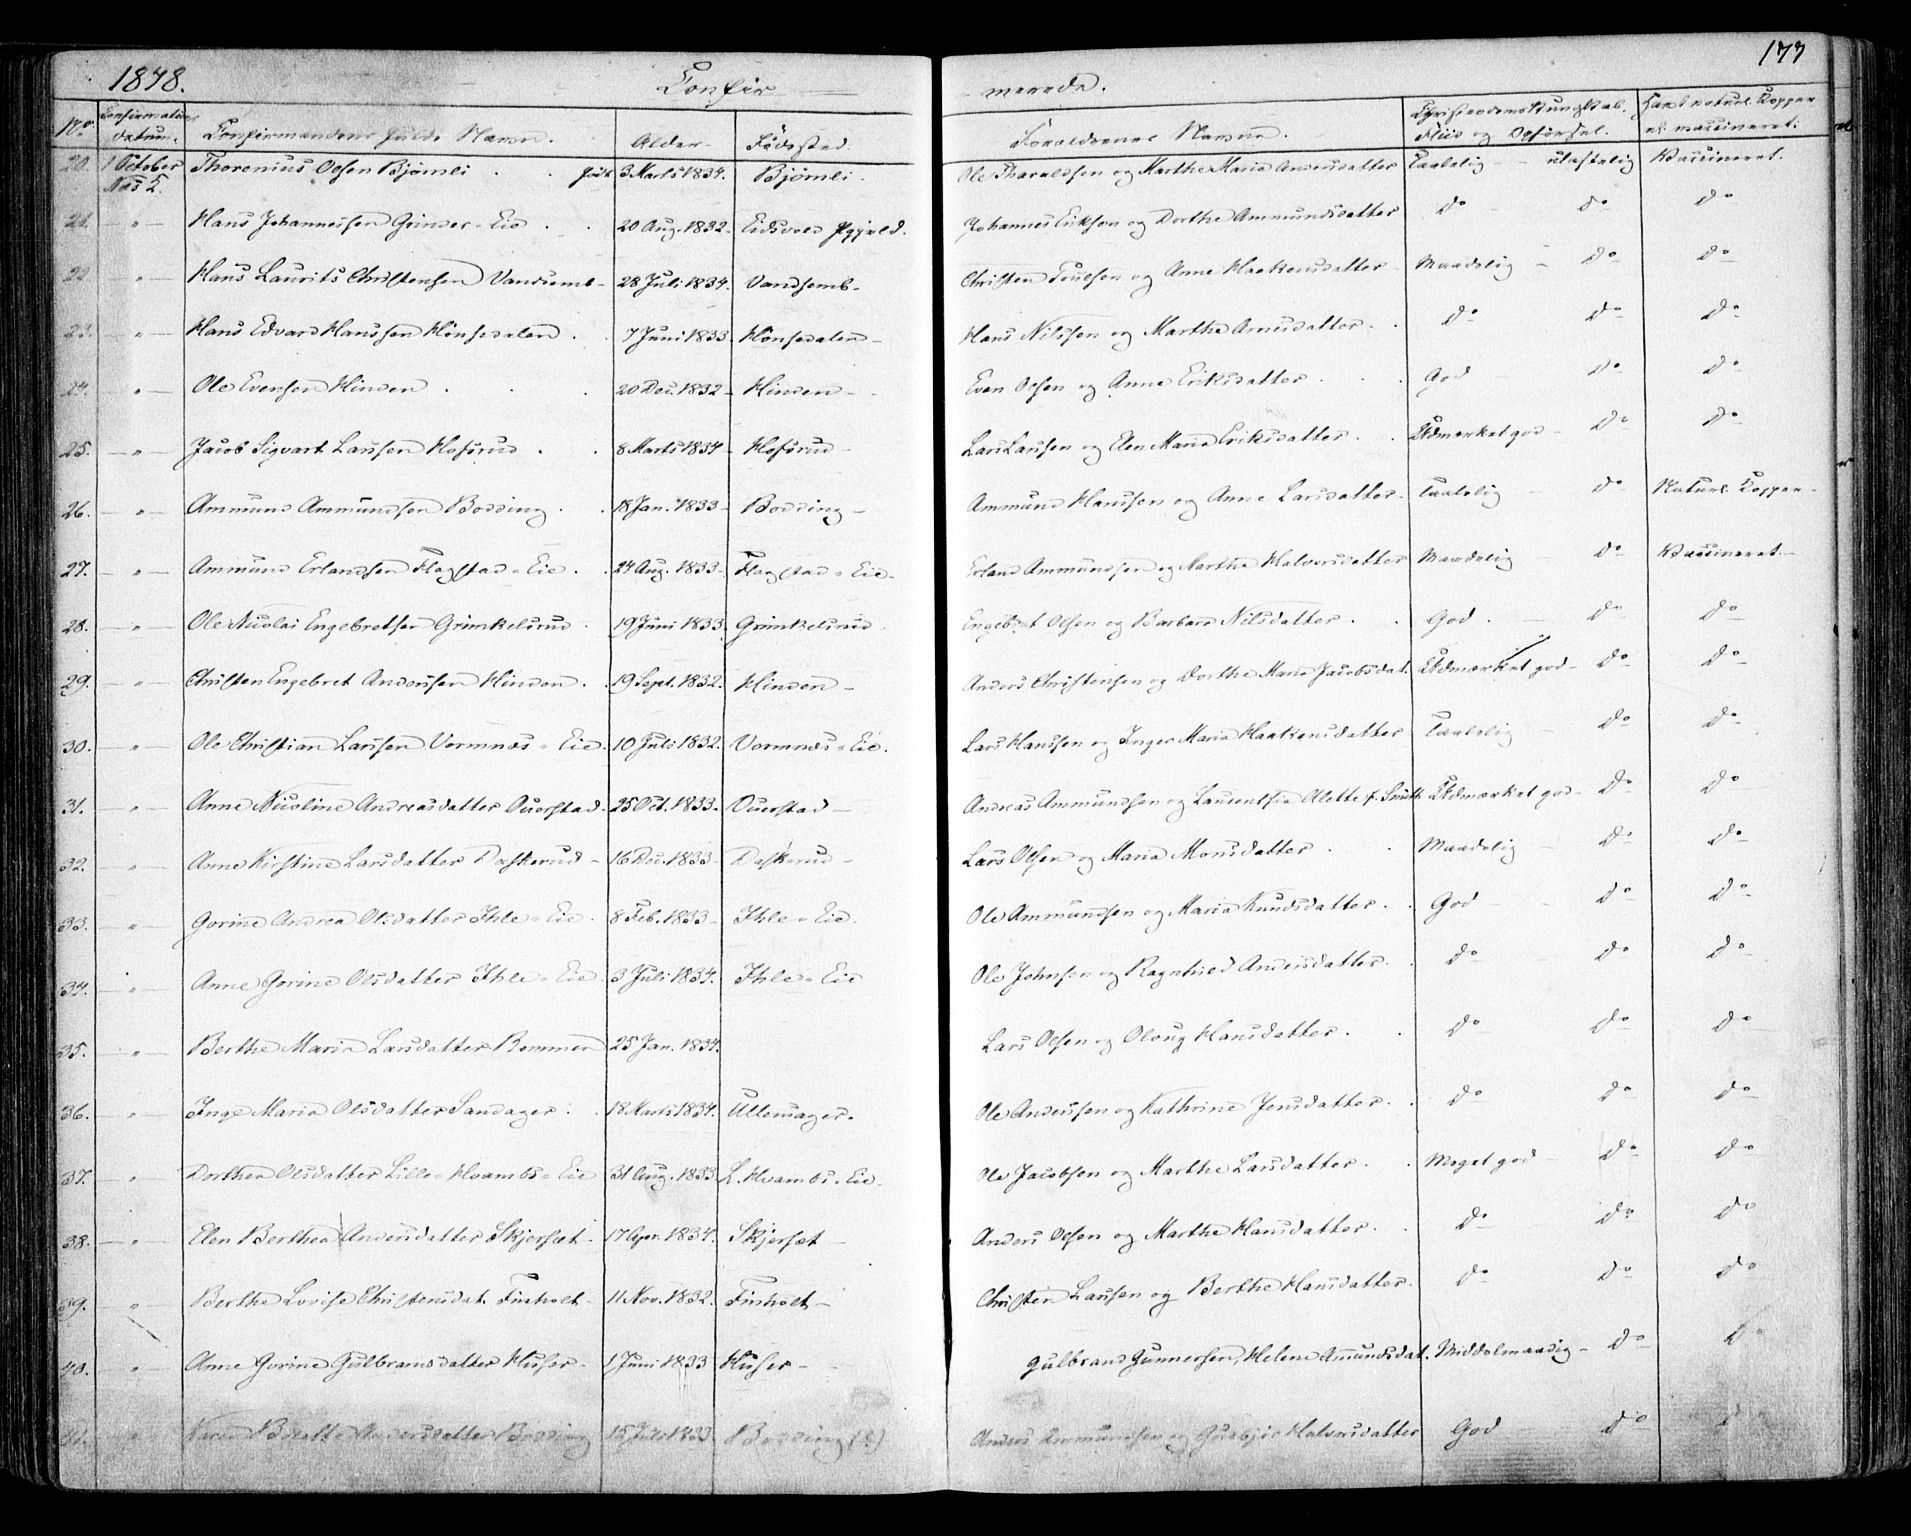 1848. Confir- merede. 177
No. Confirmations datum. Confirmandens fulde Navn. Alder. Fødested. Forældrenes Navne. Christendomskundskab, Fliid og Opførsel. Havt naturl. Kopper el. vaccineret.
20. 1 October Næs K. Thorenius Olsen Bjømli . . født 3 Marts 1834. Bjømli. Ole Tharaldsen og Marthe Maria Andersdatter Taalelig - ulastelig Vaccineret.
21. " Hans Johannessen Grinder-Eie . . 20 Aug. 1832. Eidsvold Johannes Erikson og Dorthe Ammundsdatter do do do
22. " Hans Laurits Christensen Vandsemb - 28 Juli 1834. Vandsemb. Christen Poulsen og Anne Haakensdatter Maadelig - do do
23. " Hans Edvard Hanssen Hønsedalen . 7 Juni 1833 Hønsedalen - Hans Nilssen og Marthe Arnesdatter. do do do
24. " Ole Evensen Hinden . . 20 Dec. 1832 - Hinden - Even Olsen og Anne Eriksdatter . . God - do do
25. " Jacob Sigvart Larssen Hofsrud . . 8 Marts 1834 - Hofsrud - Lars Larssen og Elen Maria Eriksdatter . . Udmærket god - do do
26. " Ammund Ammundsen Bodding . . 18 Jan. 1833 - Bodding - Ammund Hanssen og Anne Larsdatter - Taalelig - do Naturl. Kopper -
27. " Ammund Erlandsen Flagstad-Eie . . 24 Aug. 1833 - Flagstad-Eie. Erland Ammundsen og Marthe Halvorsdatter Maadelig - do Vaccineret -
28. " Ole Nicolai Engebretsen Grimkelsrud . 19 Juni 1833 Grimkelsrud. Engebret Olsen og Barbara Nilsdatter . . God . - do do
29. " Christen Engebret Anderssen Hinden . . 19 Sept. 1832. Hinden - Anders Christensen og Dorthe Maria Jacobsdat. Udmærket god - do do
30. " Ole Christian Larssen Vormnæs-Eie. 10 Juli 1832. Vormnæs-Eie. Lars Hanssen og Inger Maria Haakensdatter Taalelig - do do
31. " Anne Nicoline Andreasdatter Ouerstad. 25 Oct. 1833. Ouerstad - Andreas Ammundsen og Laurentsia Alette f. Smith Udmærket god - do do
32. " Anne Kirstine Larsdatter Daskerud - 16 Dec. 1833 - Daskerud - Lars Olsen og Maria Monsdatter . . Maadelig - do do
33. " Gorine Andrea Olsdatter Ihle-Eie . 8 Feb. 1833 - Ihle-Eie. Ole Ammundsen og Maria Knudsdatter . . God - do do
34. " Anne Gorine Olsdatter Ihle-Eie 3 Juli 1834. Ihle-Eie Ole Johnsen og Ragnhild Andersdatter . . do do do
35. " Berthe Maria Larsdatter Rommen 25 Jan. 1834. Lars Olsen og Oloug Hansdatter . . do do do
36. " Inge Maria Olsdatter Sandager . . 18 Marts 1834. Ullensager. Ole Anderssen og Kathrine Jensdatter . . do do do
37. " Dorthea Olsdatter Lille-Hvambs-Eie 31 Aug. 1833 L. Hvambs-Eie. Ole Jacobsen og Marthe Larsdatter . . Meget god - do do
38. " Elen Berthea Andersdatter Skjersæt . 17 Apr. 1834. Skjersæt - Anders Olsen og Marthe Hansdatter . . do do do
39. " Berthe Lovise Christensdat. Finholt - 11 Nov. 1832. Finholt - Christen Larssen og Berthe Hansdatter. do do do
40. " Anne Gorine Gulbransdatter Huser - 1 Juni 1833 Huser - Gulbrand Gunnersen, Helene Amundsdat. Middelmaadig - do do
41. " Karen Andersdatter Bodding 15 Juli 1833 Bodding Anders Ammundsen og Halvorsdatter God - do do